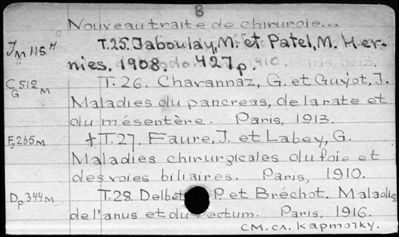 8
Nouveau traité de chirurgie...
Jm 115 H T.25. Jaboulay, M. et Patel, M. Her-
nies. 1908. 427 p.
C G 512 M T. 26. Chavannaz, G. et Guyot, J.
Maladies du pancreas, de la rate et
du mésentère. Paris, 1913.
F, 265 M †T.27. Faure, J. et Labey, G.
Maladies chirurgicales du foie et
des voies biliaires. Paris, 1910.
Dp 344 M T.28. Delbet P. et Bréchot. Maladies
de l'anus et du rectum. Paris, 1916.
См. сл. карточку.